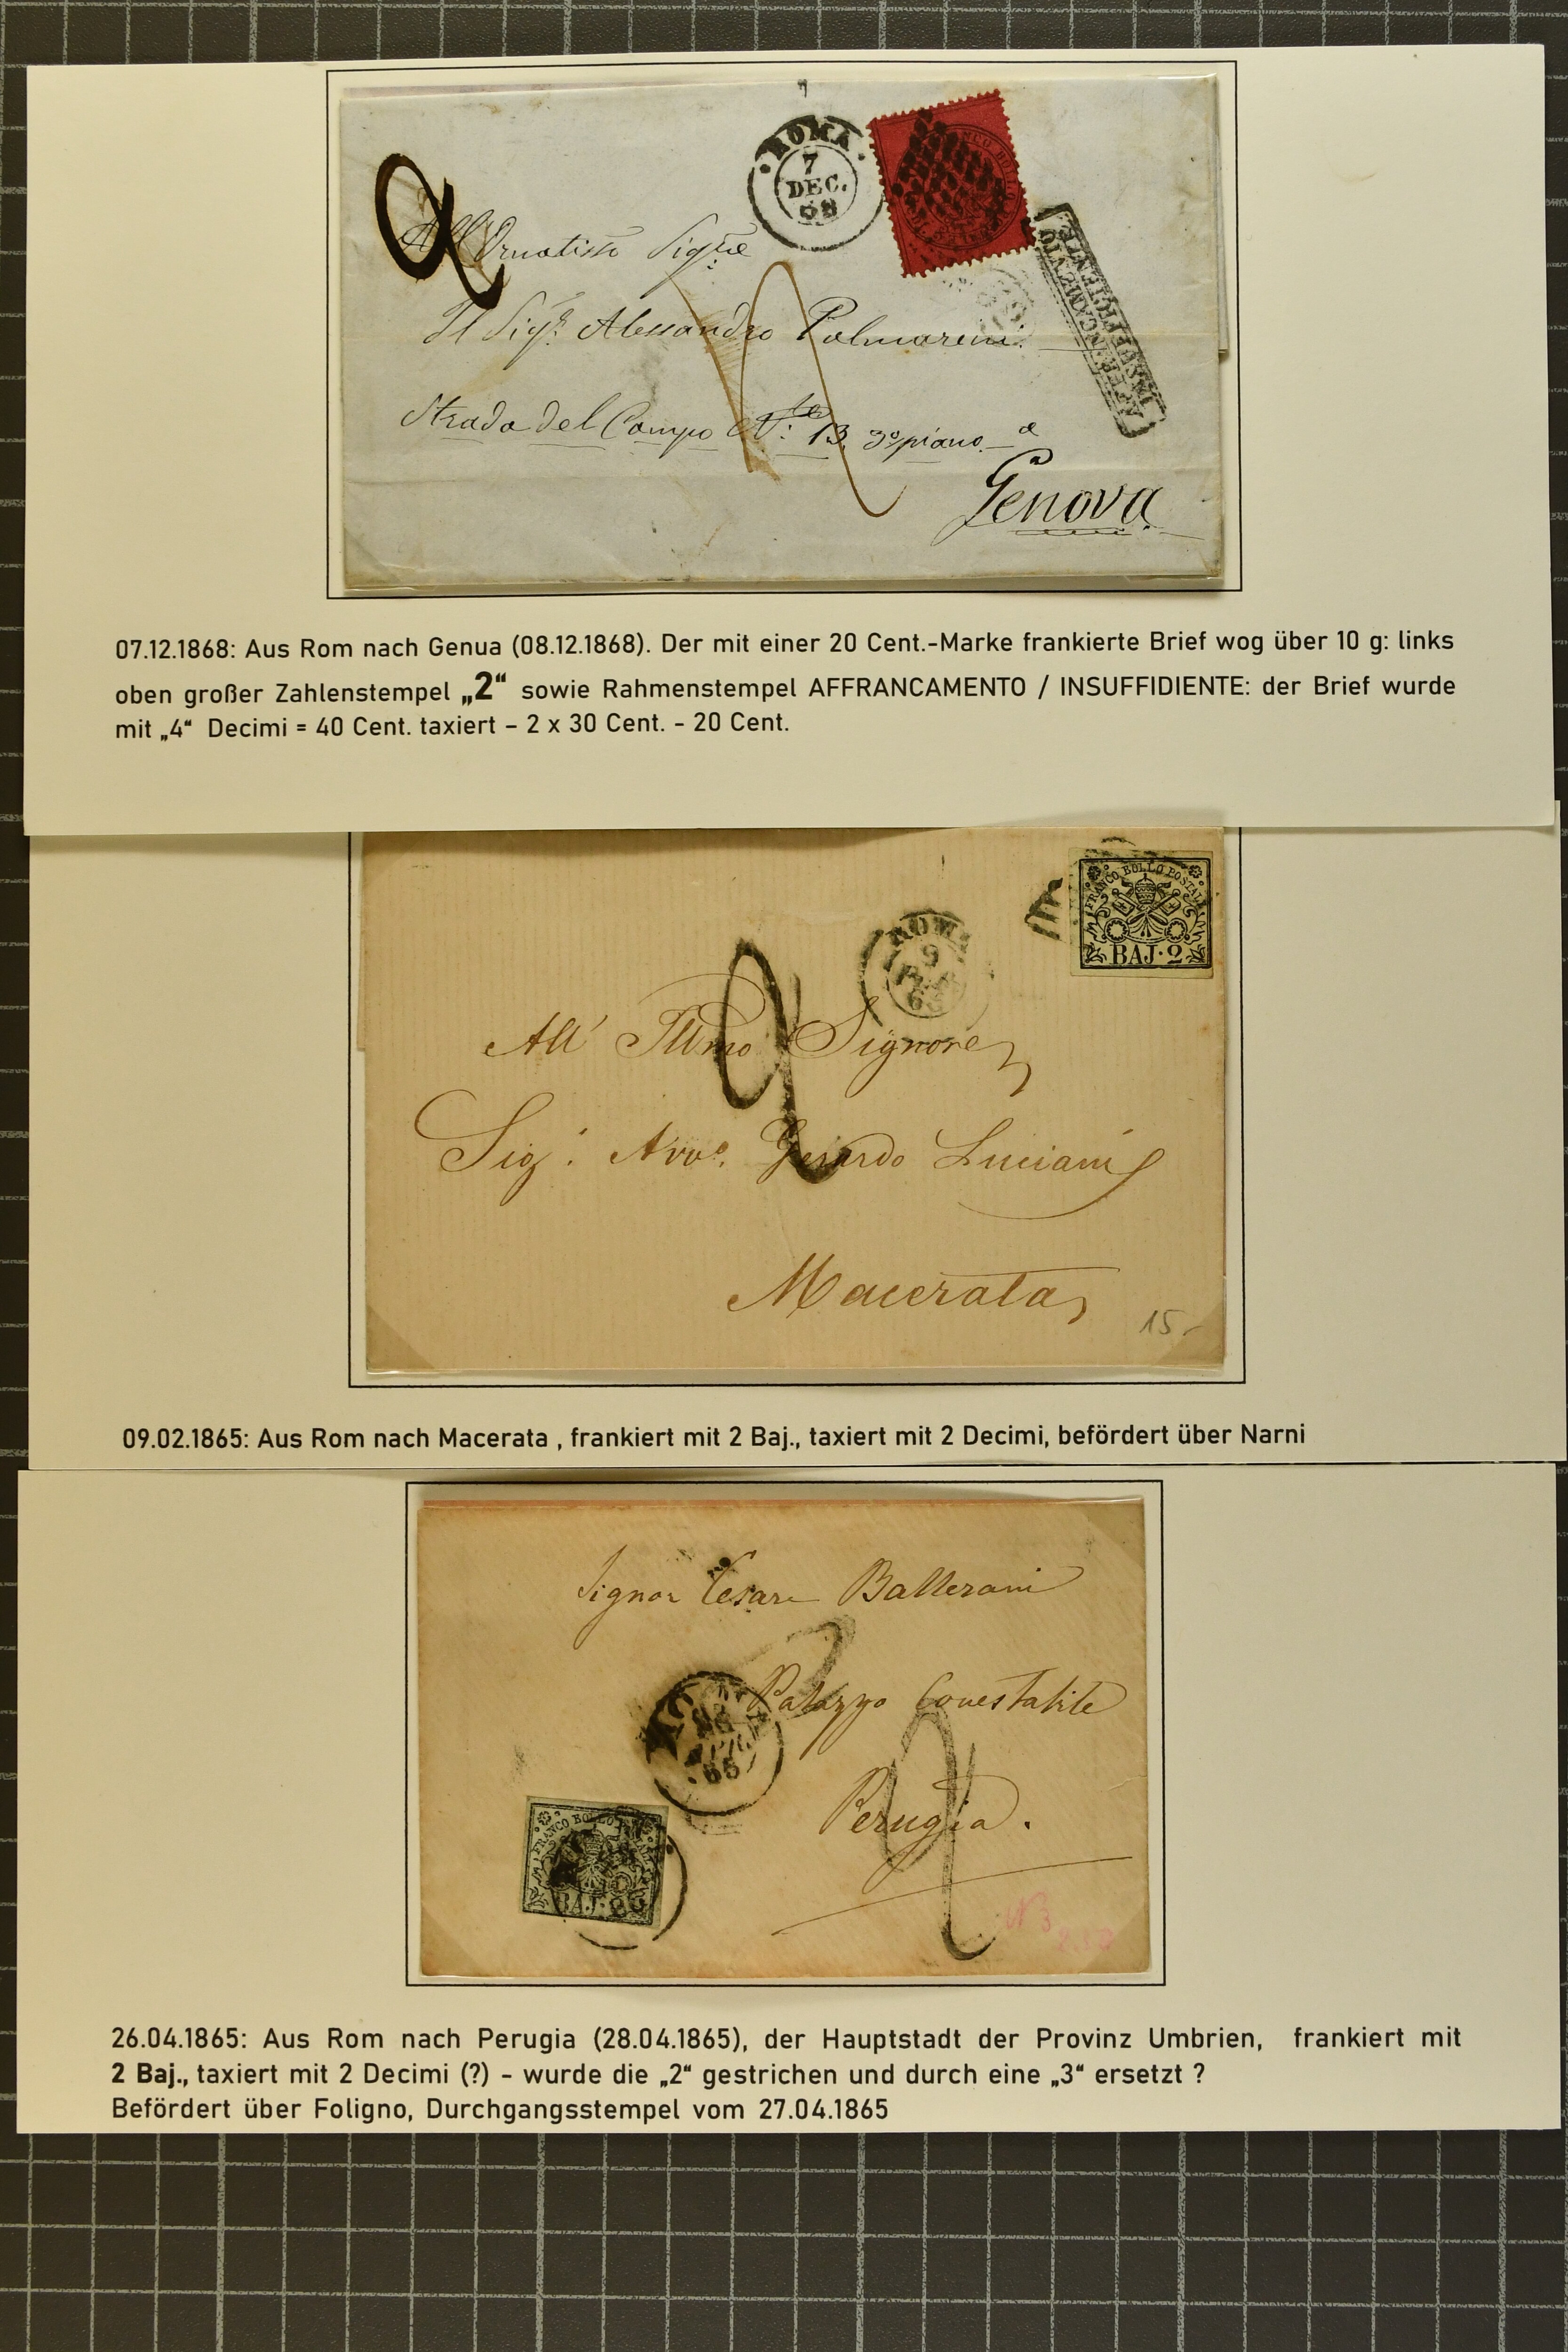 2
ROMA
7
DEC.
68
AFFRANCAMENTO
INSUFFICIENTE
All'Ornatissmo Sigre
Il Sigr. Alessandro Palmareni
Strada del Campo No. 13, 3º piano a
Genova
07.12.1868: Aus Rom nach Genua (08.12.1868). Der mit einer 20 Cent.-Marke frankierte Brief wog über 10 g: links
oben großer Zahlenstempel „2“ sowie Rahmenstempel AFFRANCAMENTO / INSUFFIDIENTE: der Brief wurde
mit „4“ Decimi = 40 Cent. taxiert – 2 x 30 Cent. - 20 Cent.
FRANCO BOLLO POSTALE
BAJ·2
ROMA
9
65
2
All' Illmo Signore
Sig. Avvo. Gerardo Luciani
Macerata
15-
09.02.1865: Aus Rom nach Macerata , frankiert mit 2 Baj., taxiert mit 2 Decimi, befördert über Narni
Signor Cesare Ballerani
Palazzo Conestabile
Perugia.
65
2
FRANCO BOLLO
BAJ·
N 3
26.04.1865: Aus Rom nach Perugia (28.04.1865), der Hauptstadt der Provinz Umbrien, frankiert mit
2 Baj., taxiert mit 2 Decimi (?) - wurde die „2“ gestrichen und durch eine „3“ ersetzt ?
Befördert über Foligno, Durchgangsstempel vom 27.04.1865